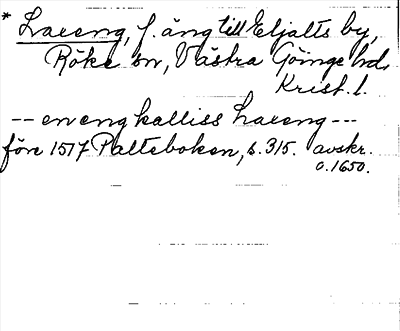 * Laxeng, f. äng till Eljalts by,
Röke sn, Västra Göinge hd,
Krist. l.
-- en eng kalliss Laxeng ---
före 1517 Palteboken, s. 315. avskr.
o. 1650.